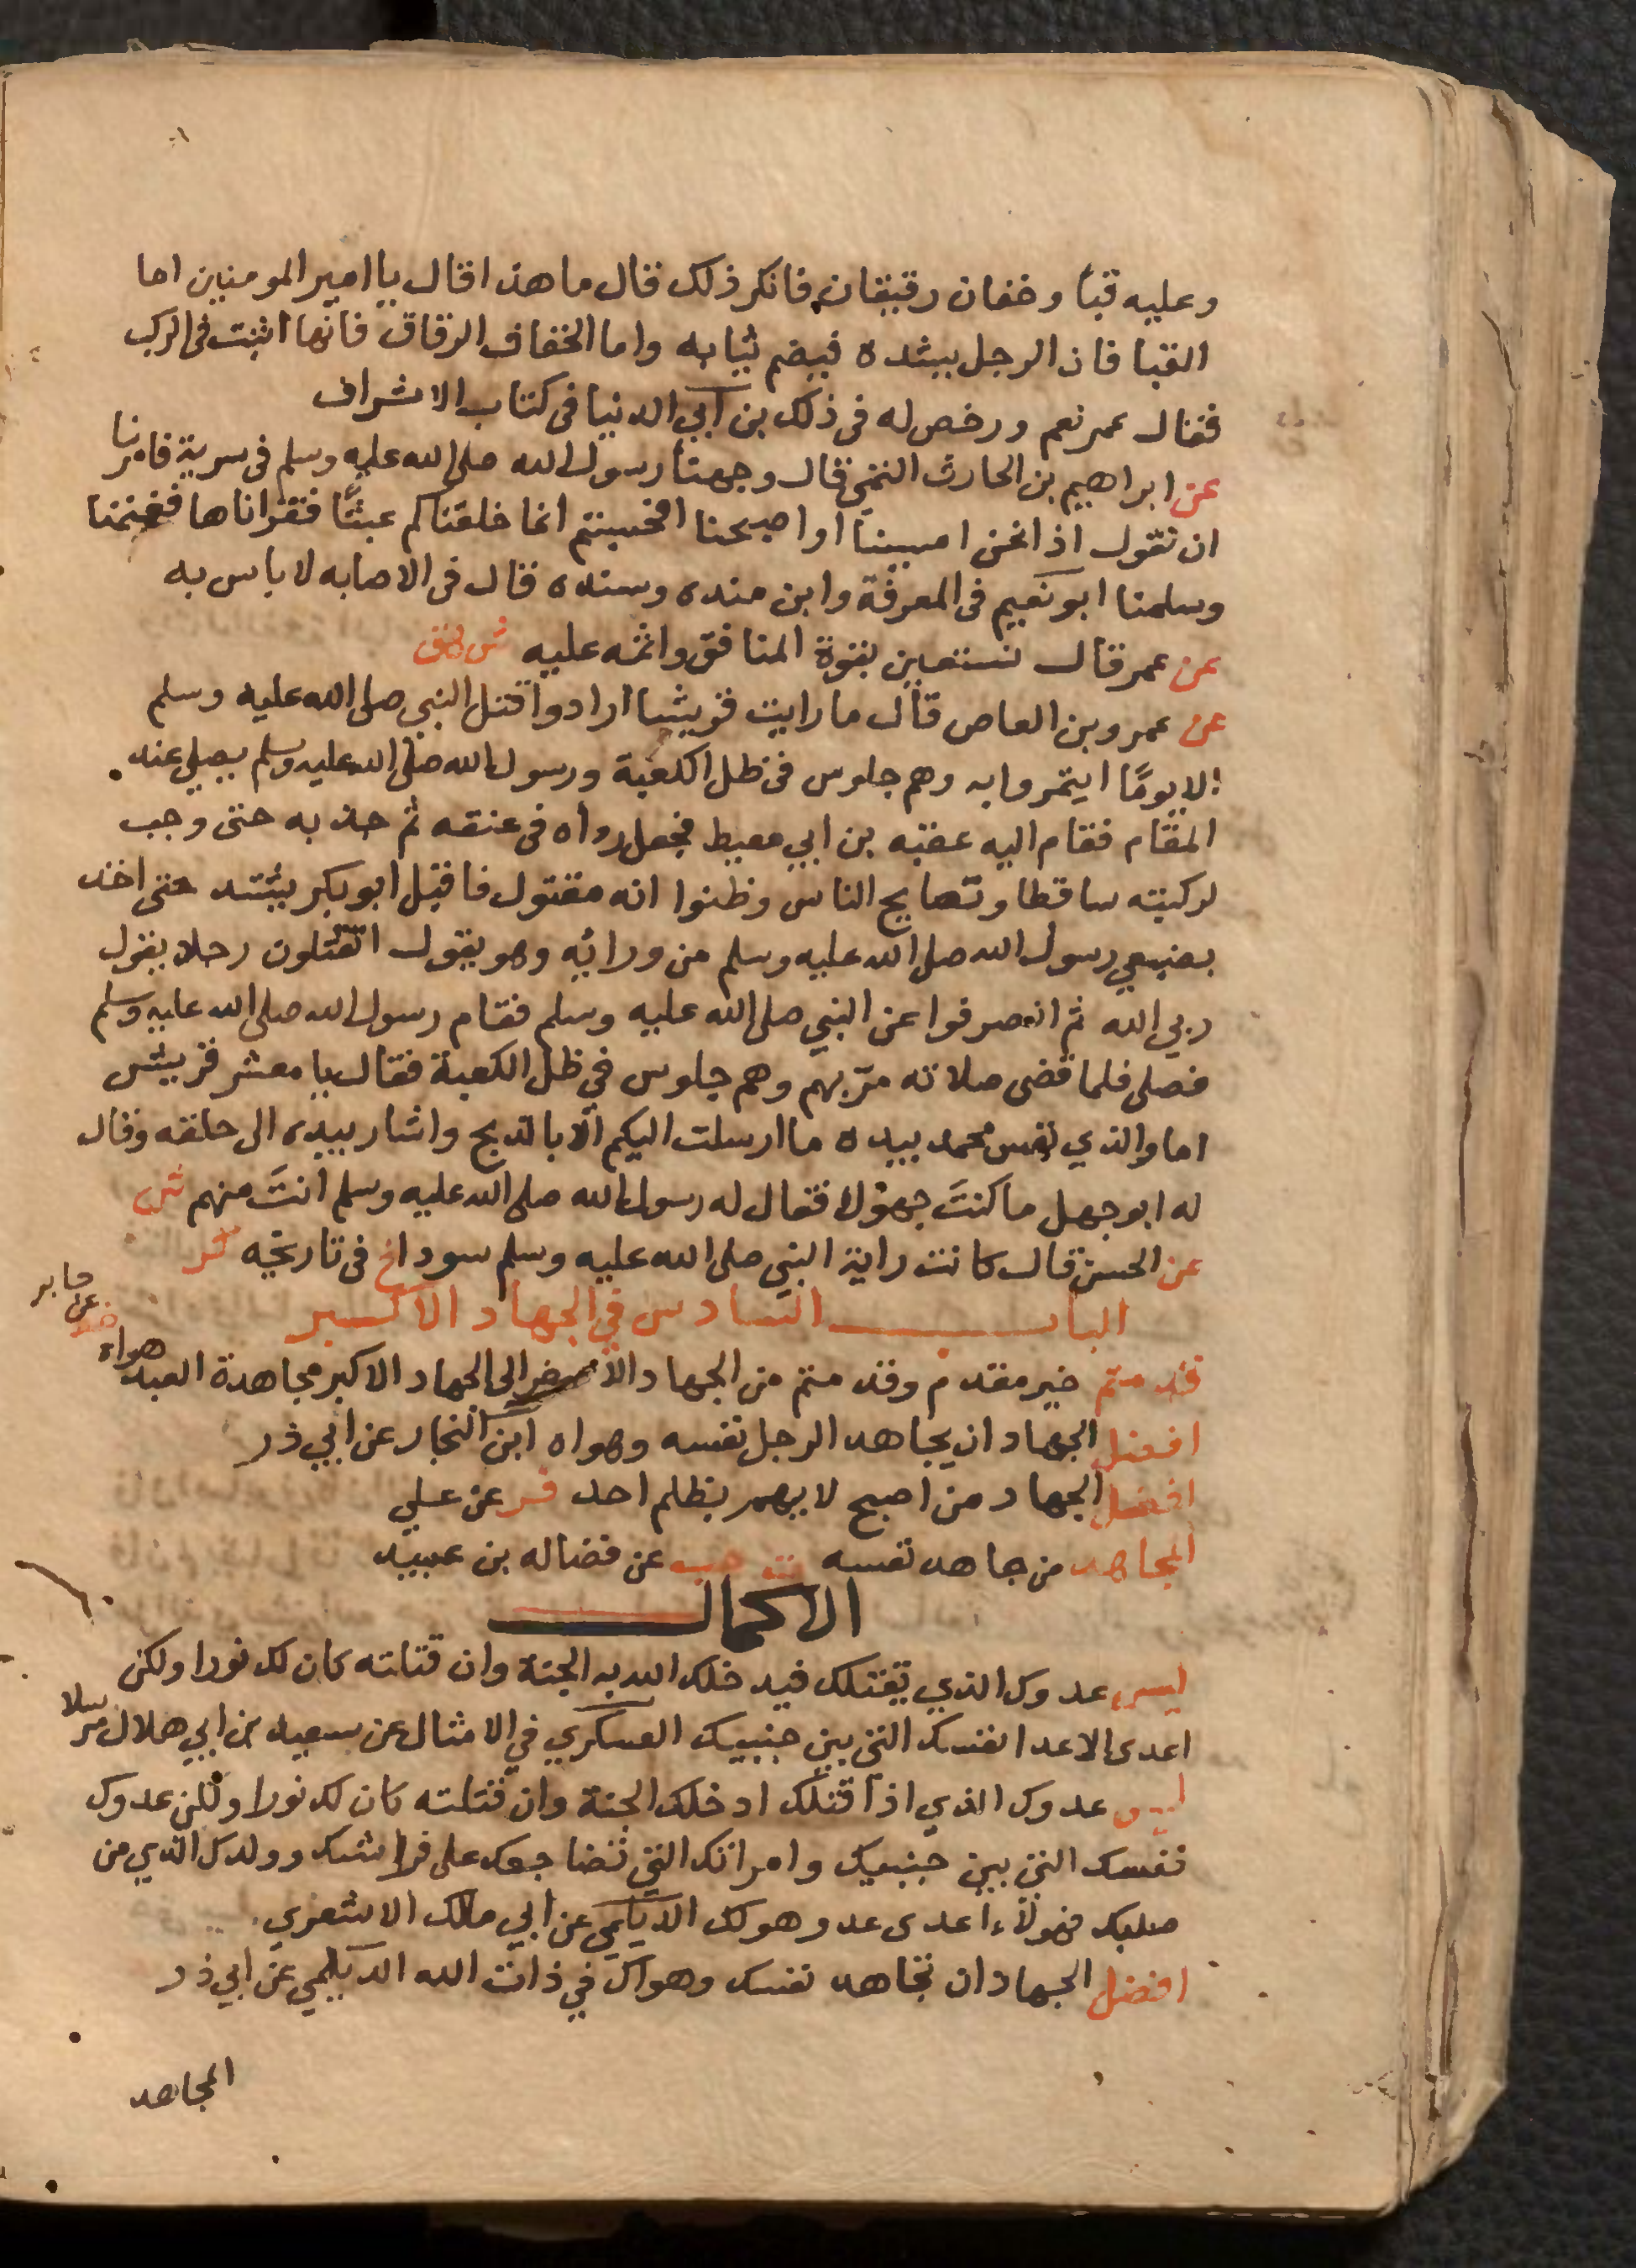 وعليه قبأ وخفان رقيقان فانكر ذلك قال ما هذا قال يا امير المومنين اما
القبا فان الرجل يشده فيضم ثيابه واما الخفاف الرقاق فانها اثبت فى الركب
فقال عمر نعم ورخص له فى ذلك بن ابي الدنيا فى كتاب الاشراف
عن ابراهيم بن الحارث التمي قال وجهنا رسول الله صلى الله عليه وسلم فى سرية فامرنا
ان نقول اذا نحن امسينا او اصبحنا افحسبتم انما خلقناكم عبثًا فقراناها فغنمنا
وسلمنا ابو نعيم فى المعرفة وابن منده وسنده قال فى الاصابه لا باس به
عن عمر قال نستعين بقوة المنافق واثمه عليه ش هق
عن عمرو بن العاص قال ما رايت قريشا ارادوا قتل النبي صلى الله عليه وسلم
الا يومًا ايتمروا به وهم جلوس فى ظل الكعبة ورسول الله صلى الله عليه وسلم يصلي عند
المقام فقام اليه عقبه بن ابي معيط فجعل رداه فى عنقه ثم جذبه حتى وجب
لركبته ساقطا وتصايح الناس وظنوا انه مقتول فاقبل ابو بكر يشتد حتى اخذ
بضبعي رسول الله صلى الله عليه وسلم من ورائه وهو يقول اتقتلون رجلا يقول
ربي الله ثم انصرفوا عن النبي صلى الله عليه وسلم فقام رسول الله صلى الله عليه وسلم
فصلى فلما قضى صلاته مرّ بهم وهم جلوس في ظل الكعبة فقال يا معشر قريش
اما والذي نفس محمد بيده ما ارسلت اليكم الا بالذبح واشار بيده الى حلقه وقال
له ابو جهل ما كنتَ جهولا فقال له رسول الله صلى الله عليه وسلم انتَ منهم ش
عن الحسن قال كانت راية النبي صلى الله عليه وسلم سودا خ فى تاريخه كر
الباب السادس في الجهاد الاكبر
قدمتم خير مقدم وقدمتم من الجهاد الاصغر الى الجهاد الاكبر مجاهدة العبد هواه خط عن جابر
افضل الجهاد ان يجاهد الرجل نفسه وهواه ابن النجار عن ابي ذر
افضل الجهاد من اصبح لا يهم بظلم احد فر عن علي
المجاهد من جاهد نفسه ت حب عن فضاله بن عبيد
الاكمال
ليس عدوك الذي يقتلك فيدخلك الله به الجنة وان قتلته كان لك نورا ولكن
اعدى الاعدا نفسك التي بين جنبيك العسكري في الامثال عن سعيد بن ابي هلال مرسلا
ليس عدوك الذي اذا قتلك ادخلك الجنة وان قتلته كان لك نورا ولكن عدوك
نفسك التي بين جنبيك وامراتك التي تضاجعك على فراشك وولدك الذي من
صلبك فهولاء اعدى عدو هو لك الديلمي عن ابي مالك الاشعري
افضل الجهاد ان تجاهد نفسك وهواك في ذات الله الديلمي عن ابي ذر
المجاهد